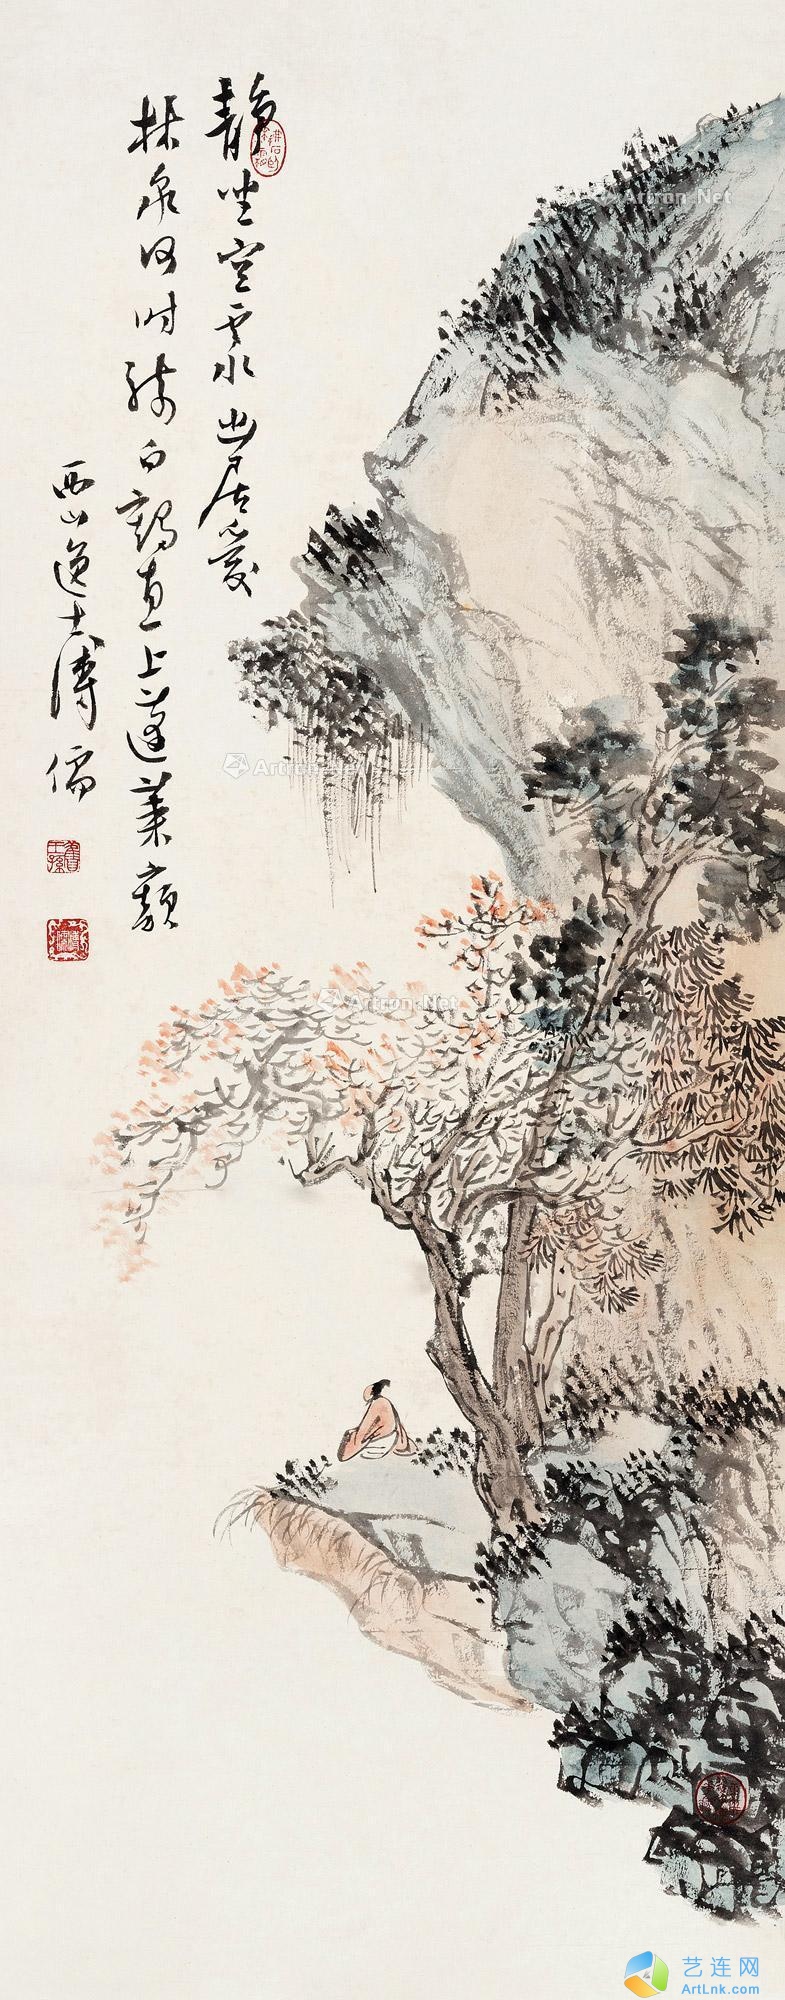 静坐空云水幽居爱
林泉何时骑白鹤直上蓬莱颠
西山逸士溥儒
Artron.Net
Artron.Net
Artron.Net
艺连网
ArtLnk.com